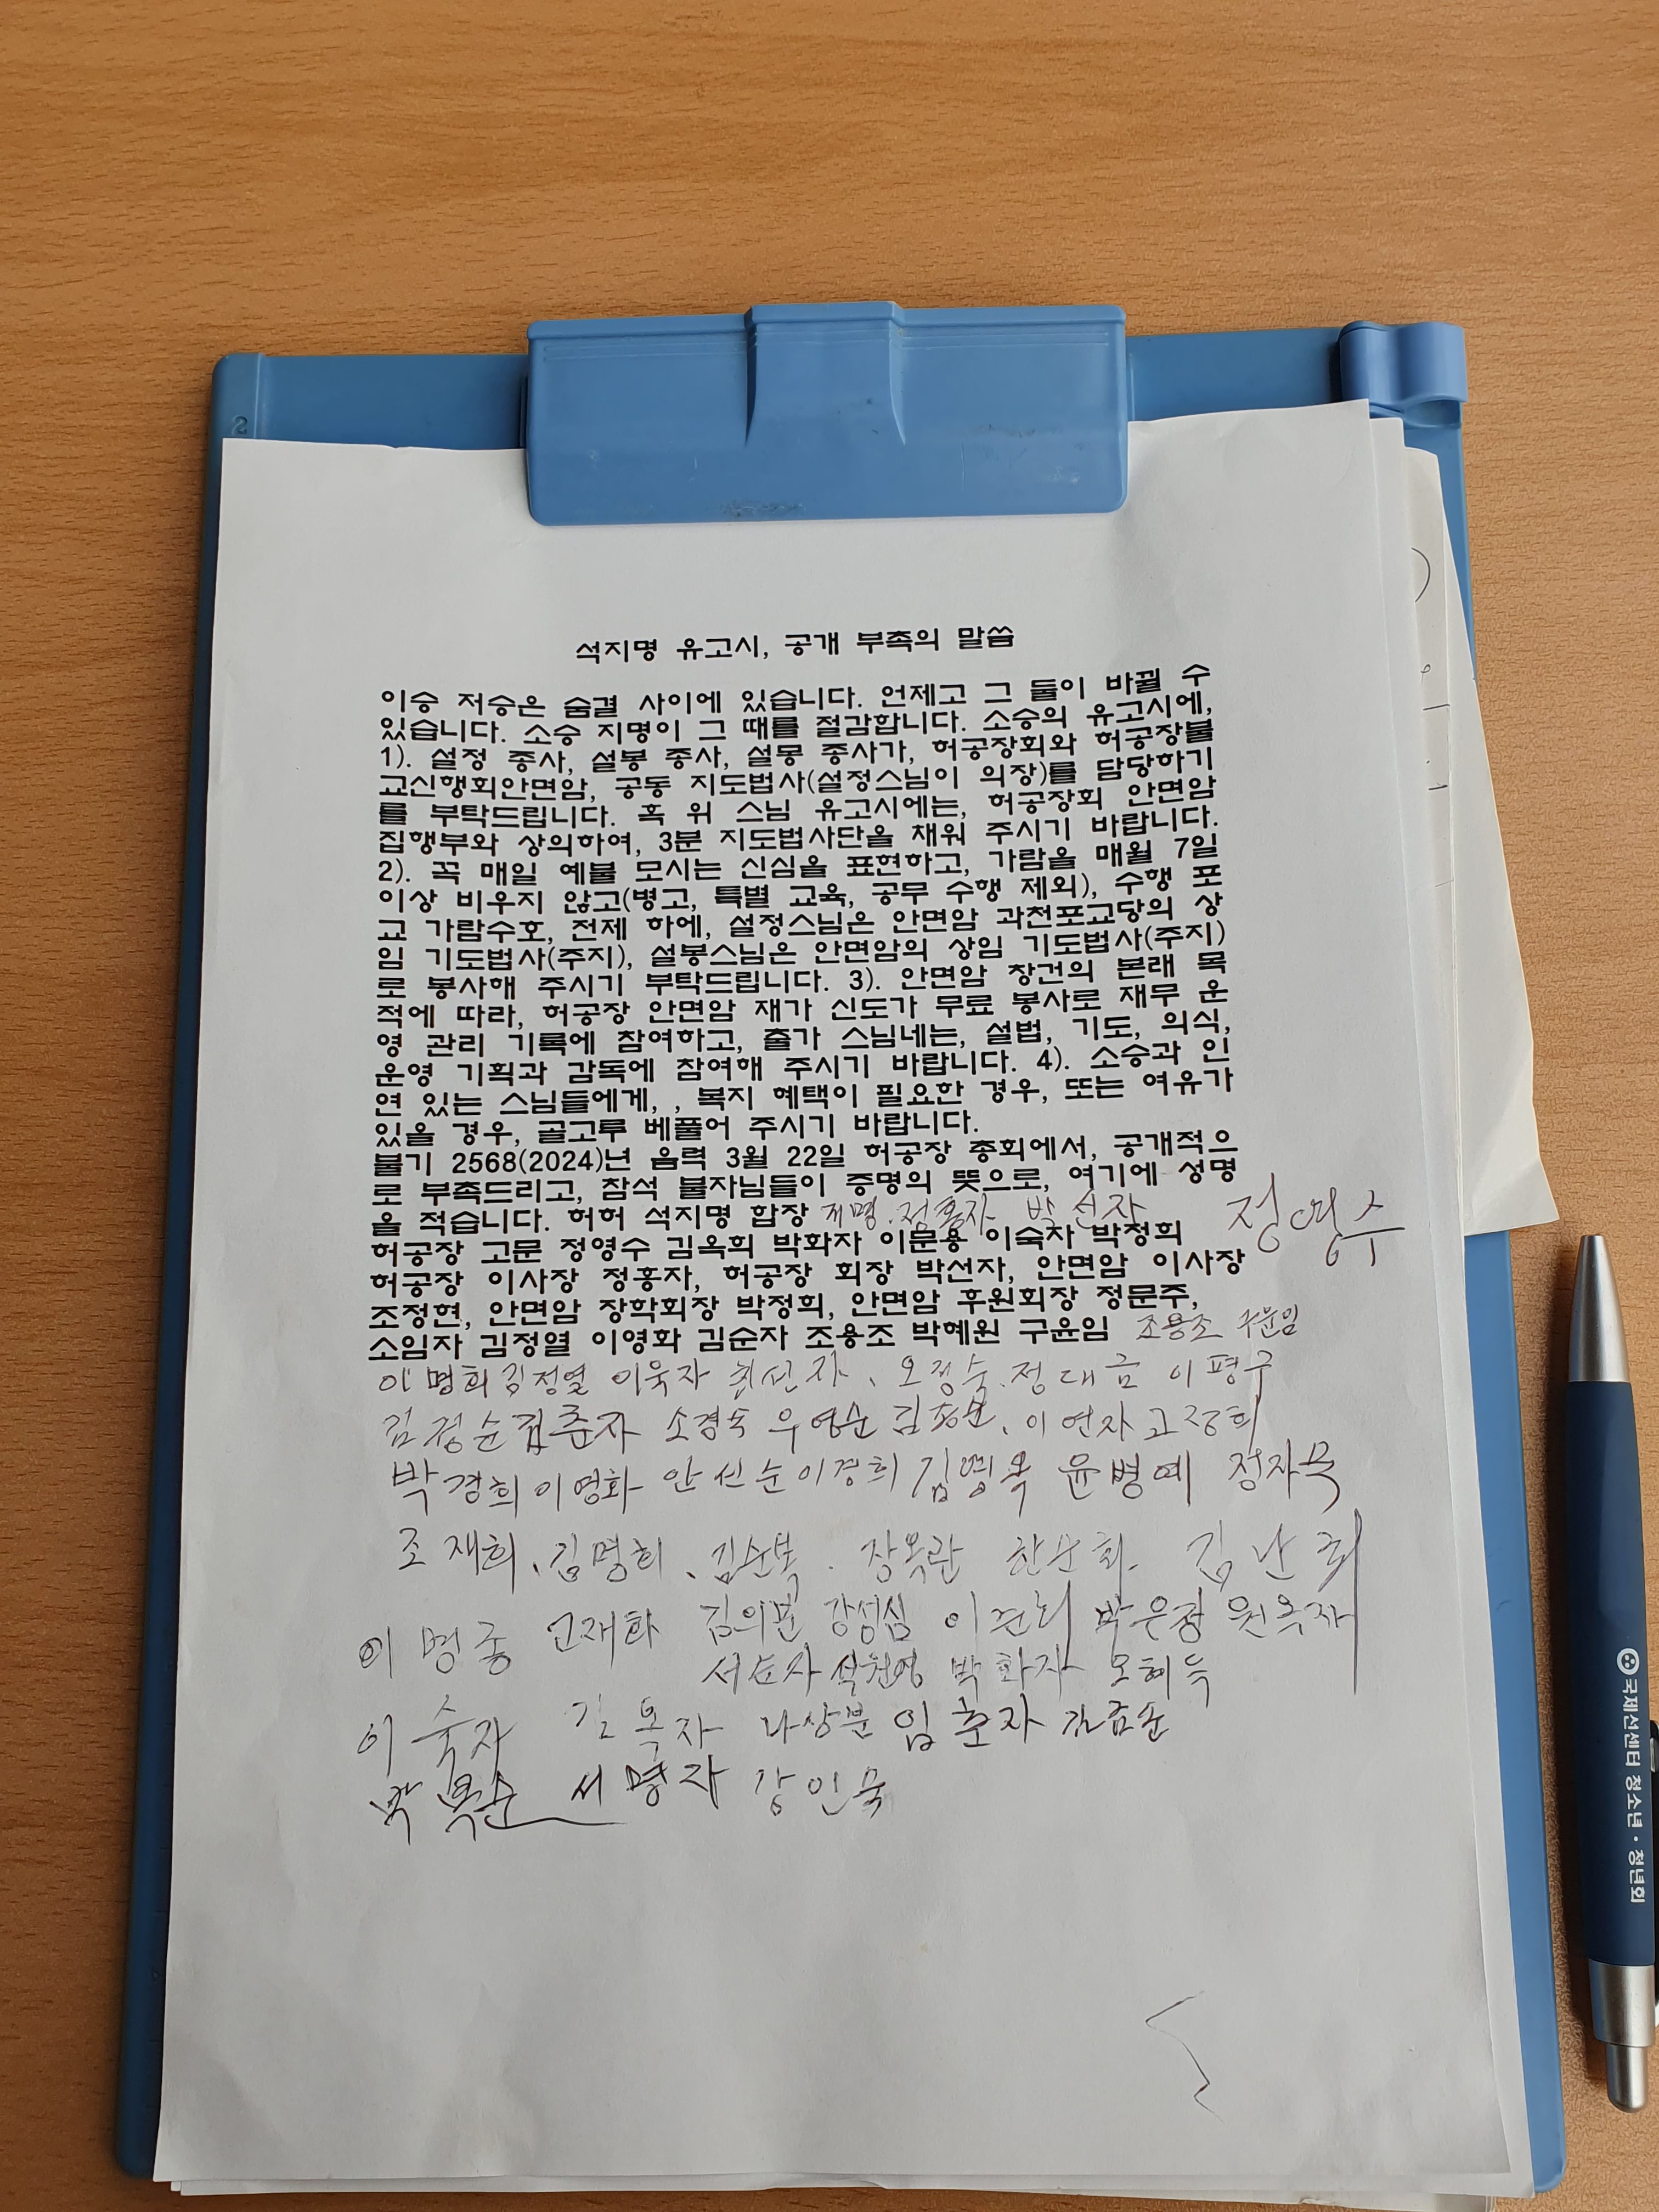 석지명 유고시, 공개 부촉의 말씀
이승 저승은 숨결 사이에 있습니다. 언제고 그 둘이 바뀔 수
있습니다. 소승 지명이 그 때를 절감합니다. 소승의 유고시에,
1). 설정 종사, 설봉 종사, 설몽 종사가, 허공장회와 허공장불
교신행회안면암, 공동 지도법사(설정스님이 의장)를 담당하기
를 부탁드립니다. 혹 위 스님 유고시에는, 허공장회 안면암
집행부와 상의하여, 3분 지도법사단을 채워 주시기 바랍니다.
2). 꼭 매일 예불 모시는 신심을 표현하고, 가람을 매월 7일
이상 비우지 않고(병고, 특별 교육, 공무 수행 제외), 수행 포
교 가람수호, 전제 하에, 설정스님은 안면암 과천포교당의 상
임 기도법사(주지), 설봉스님은 안면암의 상임 기도법사(주지)
로 봉사해 주시기 부탁드립니다. 3). 안면암 창건의 본래 목
적에 따라, 허공장 안면암 재가 신도가 무료 봉사로 재무 운
영 관리 기록에 참여하고, 출가 스님네는, 설법, 기도, 의식,
운영 기획과 감독에 참여해 주시기 바랍니다. 4). 소승과 인
연 있는 스님들에게, , 복지 혜택이 필요한 경우, 또는 여유가
있을 경우, 골고루 베풀어 주시기 바랍니다.
불기 2568(2024)년 음력 3월 22일 허공장 총회에서, 공개적으
로 부촉드리고, 참석 불자님들이 증명의 뜻으로, 여기에 성명
을 적습니다. 허허 석지명 합장 지명. 정홍자 박선자 정영수
허공장 고문 정영수 김옥희 박화자 이문용 이숙자 박정희
허공장 이사장 정홍자, 허공장 회장 박선자, 안면암 이사장
조정현, 안면암 장학회장 박정희, 안면암 후원회장 정문주,
소임자 김정열 이영화 김순자 조용조 박혜원 구윤임 조용조 구윤임
이명희 김정열 이욱자 최선자. 오정숙. 정대금 이평구
김정순 김춘자 소경숙 우영순 이연자 고정희
박경희 이영화 안선순 이경희 김명옥 윤병예 정자옥
조재희. 김명희. 김순복. 장옥란 한순희. 김난희
이명종 김의분 강성심 박은정 원옥자
서순자 석원영 박화자 오혜득
이숙자 김옥자 나상분 임춘자 김금순
박복순 서명자 강인숙
국제선센터 청소년·청년회
2